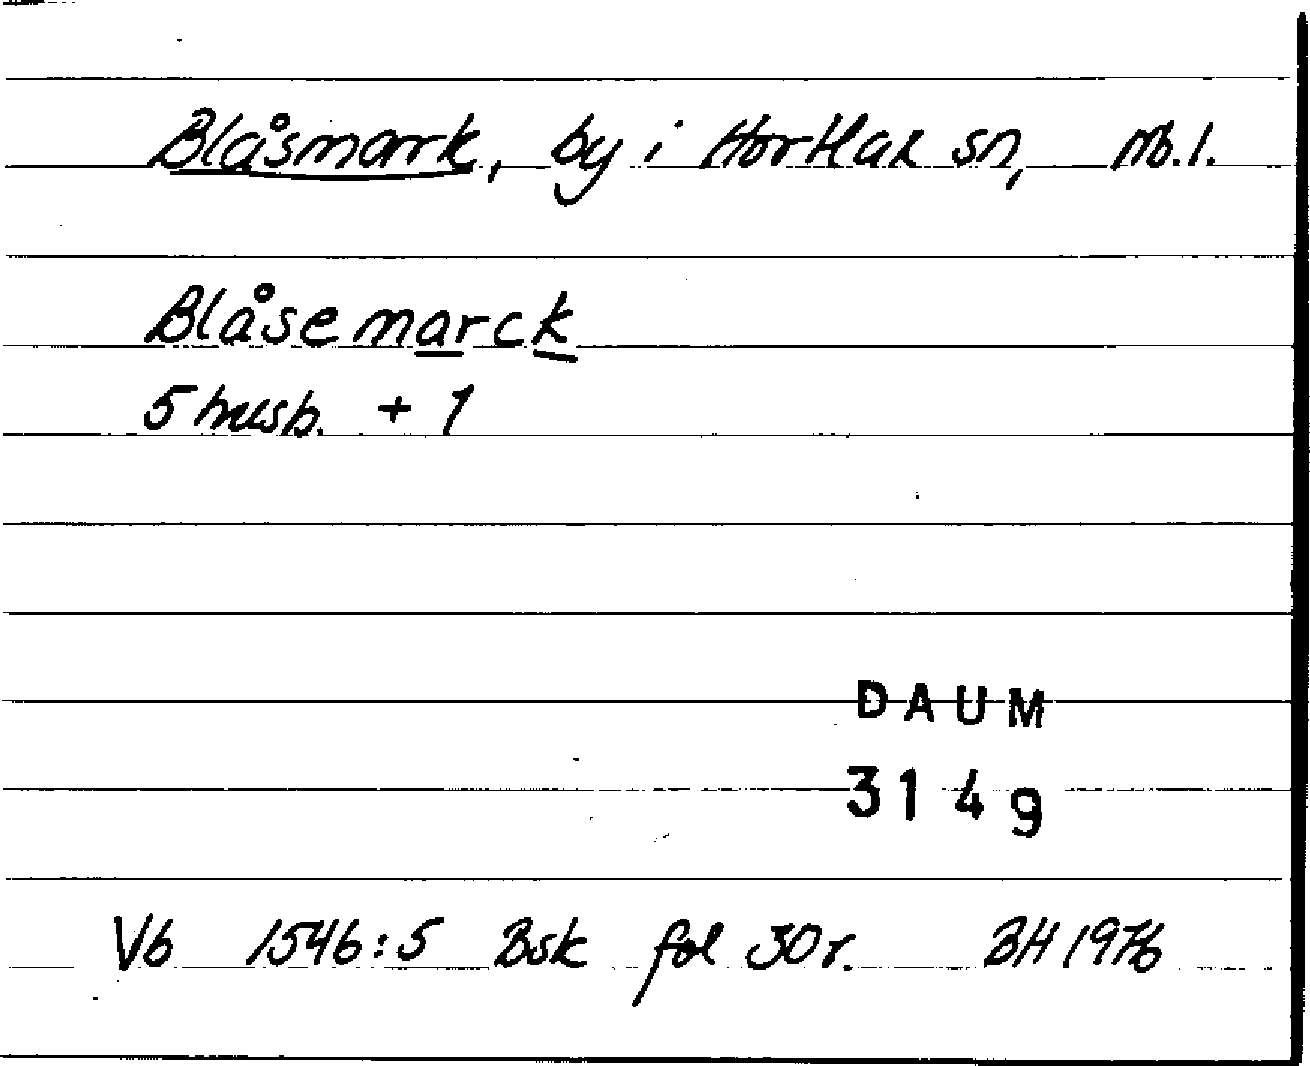 Blåsmark, by i Hortlax sn, Nb.l.
Blåsemarck
5 husb. + 1
DAUM
3149
Vb 1546:5 Bsk fol 30r. BH 1976